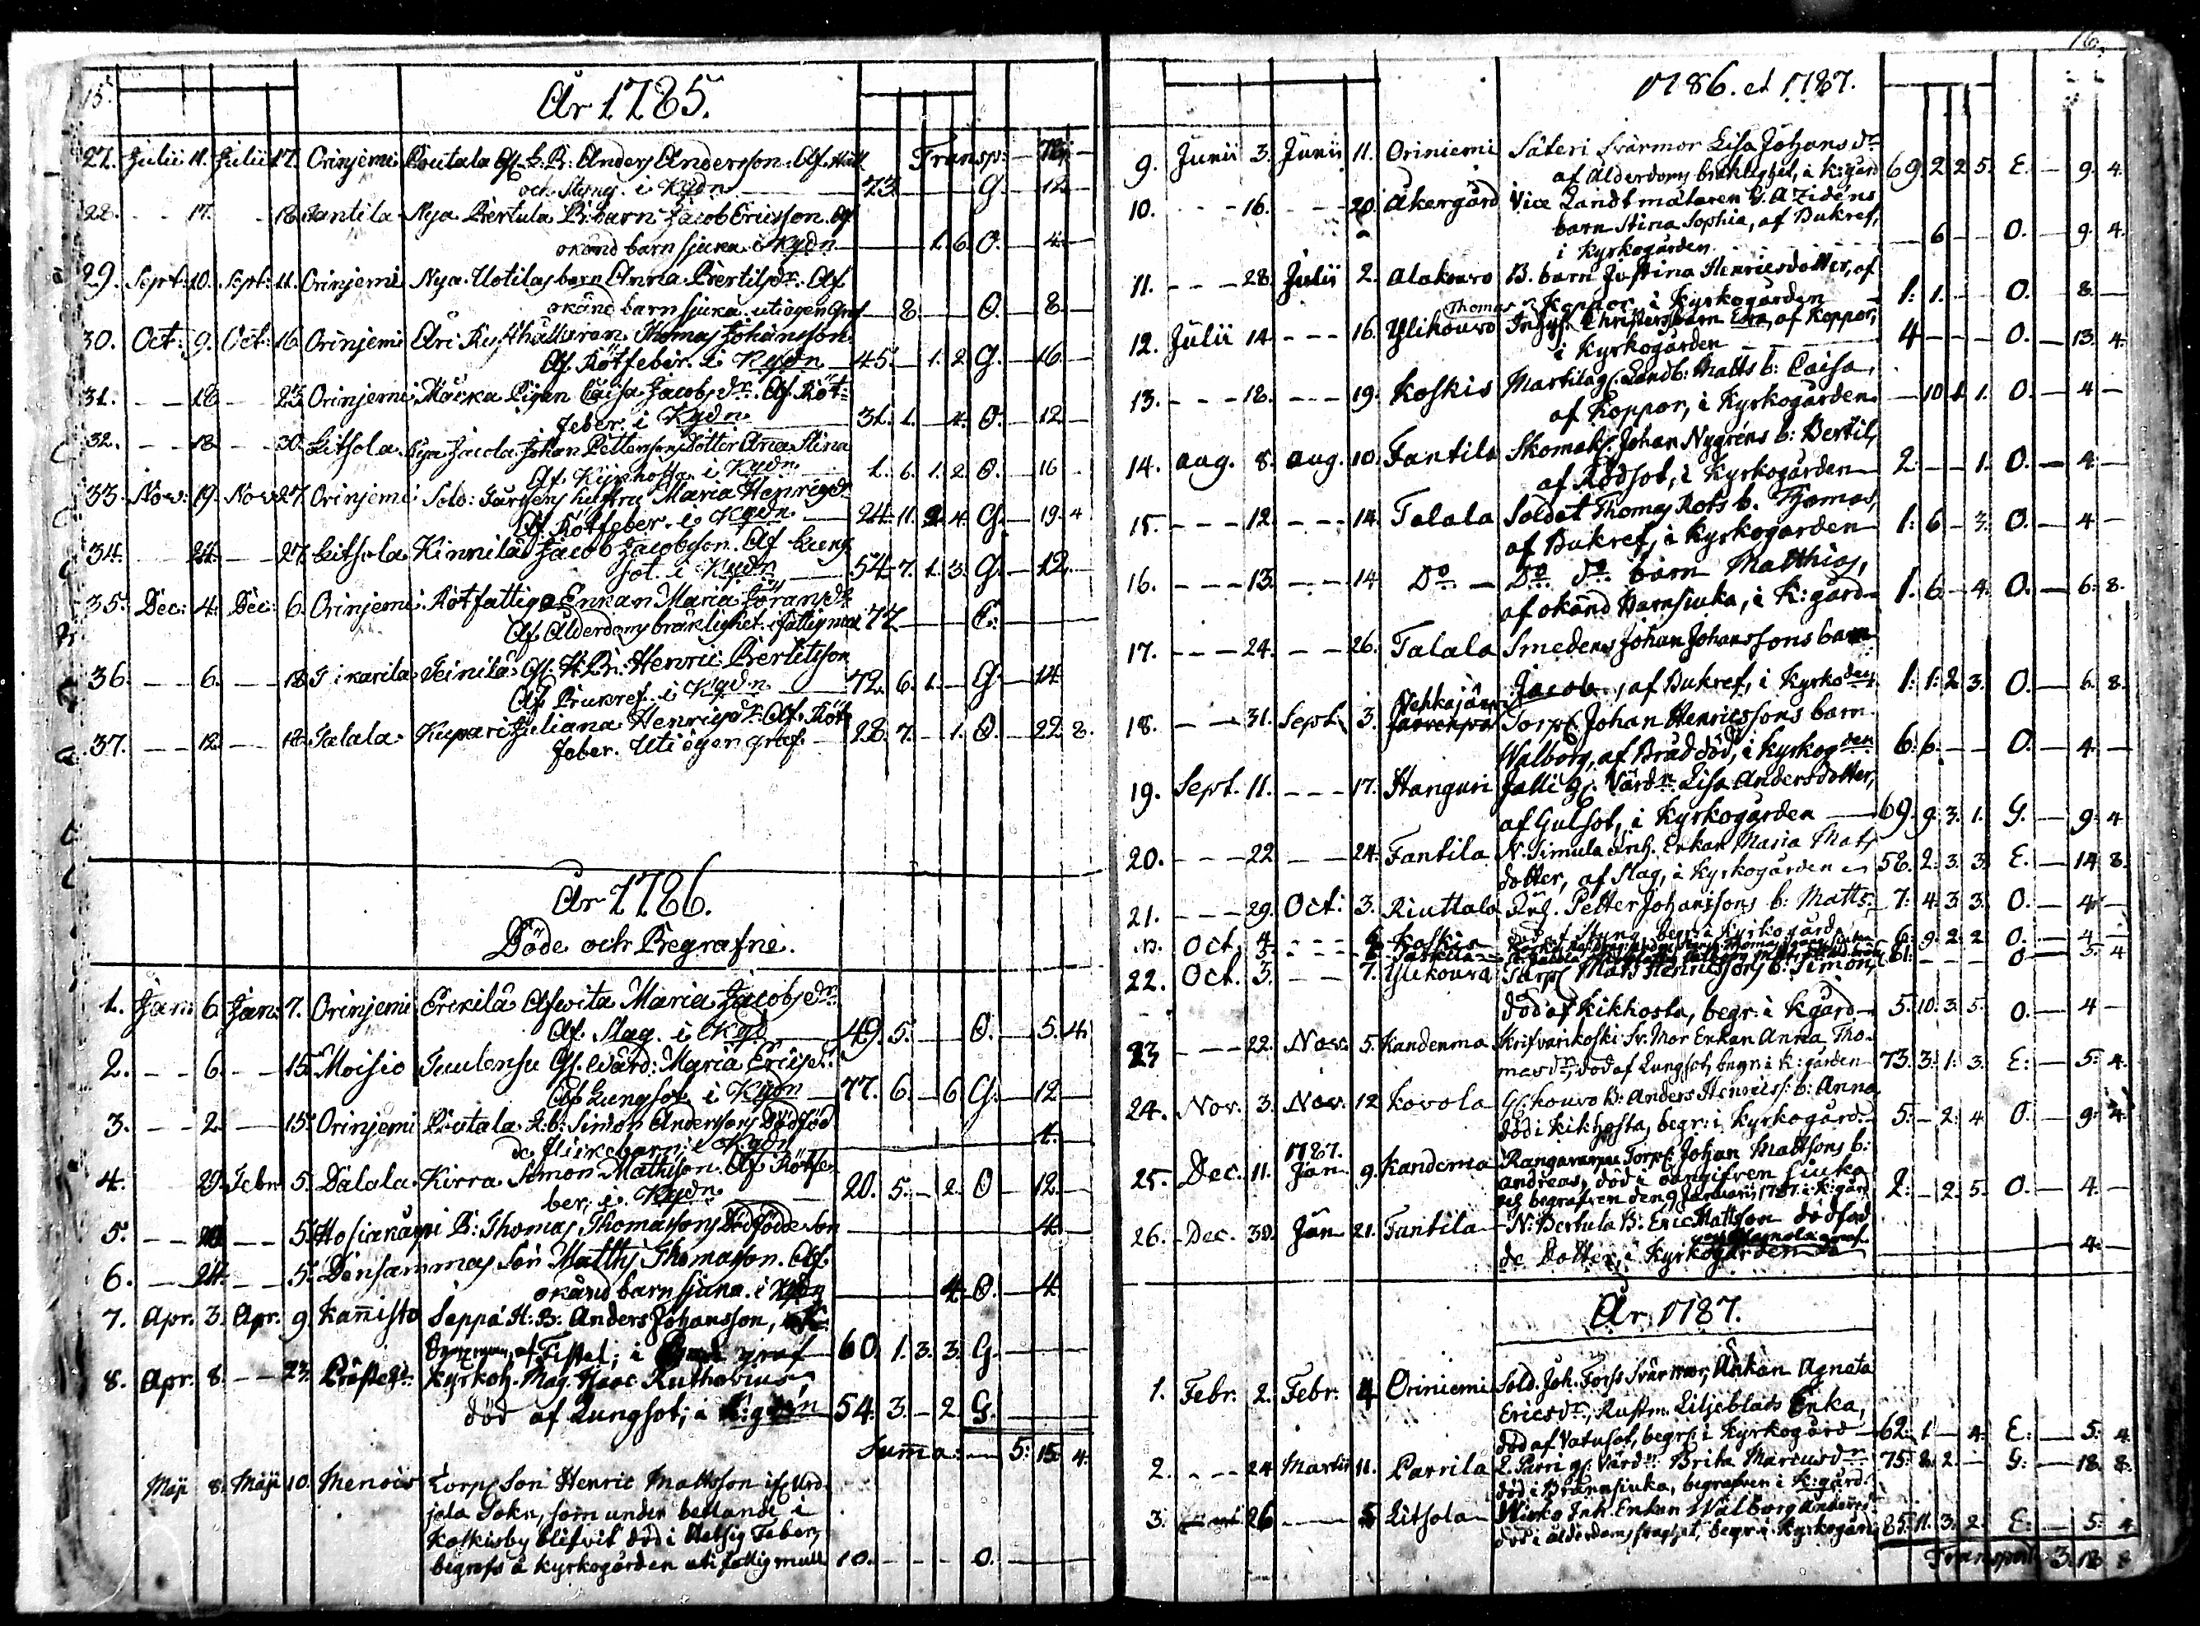 15.
År 1785.
27. Julii 11. Julii 17. Orinjemi Poutala Gl. L. B: Anders Andersson. Af Håll Transp: —
och Styng. i Kgdn — 73. G. — 12. —
28. — 17. — 18. Fantila Nya Pertula B: barn Jacob Ericsson. Af
okänd barnsjuka i Kgdn — 1. 6. O. — 4. —
29. Sept: 10. Sept: 11. Orinjemi Nya Uotilas barn Anna Bertilsdr. Af
okänd barnsjuka. uti ögen graf — 8. — O. — 8. —
30. Oct: 9. Oct: 16. Orinjemi Thomas Johansson
Af Rötfeber. i Kgdn — 45. — 1. 2. G. — 16. —
31. — 18. — 23. Orinjemi Pigan Caisa Jacobsdr. Af Röt-
feber. i Kgdn — 31. 1. — 4. O. — 12. —
32. — 18. — 30. Leitsola Nya Jacola Johan Pettersons Dotter Ana Stina
Af Kikhosta i Kgdn — 1. 6. 1. 2. O. — 16 —
33. Nov: 19. Nov: 27. Orinjemi Sold: hustru Maria Henrigsdr
Af Rötfeber. i Kgdn — 24. 11. 2. 4. G. — 19. 4
34. — 24. — 27. Leitsola Kinnilä Jacob Jacobsson. Af Lung
sot. i Kgdn — 54. 7. 1. 3. G. — 12. —
35. Dec: 4. Dec: 6. Orinjemi Rotfattiga Enkan Maria Göransdr
Af Ålderdoms bräklighet. i fattigmull 77. — E. —
36. — 6. — 18. Henric Bertilsson
i Kgdn — 72. 6. 1. — G. — 14
37. — 12. — 18. Talala Kupari Juliana Henrigsdr Af Röt
feber. Uti ögen graf. — 28. 7. — 1. O. — 22. 8.
År 1786.
Döde och Begrafne.
1. Jan: 6. Jan: 7. Orinjemi Erikilä Afwita Maria Jacobsdr
Af Slag. i Kgd — 49. 5. — O. — 5. 4.
2. — 6. — 15. Moisio Tuulensu Gl. wärd: Maria Ericsdr.
Af Lungsot. i Kgdn — 77. 6. — 6. G. — 12 —
3. — 2. — 15. Orinjemi Poutala L. b: Simon Anderssons Dödföd
de flickebarn; i Kgdn — 4. —
4. 29. Febr: 5. Dalala Kirra Simon Mattsson. Af Rötfe-
ber; i Kgdn — 20. 5. — 2. O — 12. —
5. — — 5. B: Thomas Thomassons Dödfödde Son — 4. —
6. — 24. — 5. Densammas Son Matths Thomasson. Af
okänd barnsjuka. i Kgdn — 4. O. — 4.
7. Apr. 3. Apr: 9 Kañisto Seppä H: B: Anders Johansson,
af Fistel; i graf 60. 1. 3. 3. G. —
8. Apr: 8. — 23. Prästegd Kyrkoh. Mag. Isaac Ruthovius
död af Lungsot; i K: gdn 54. 3. — 2 G. —
Sum̃a: — 5: 15. 4.
Maji 8. Maji 10. Menois Torps Son Henric Mattsson ifr Urd-
jala Sokn, som under betlande i
Kolkisby blifvit död i Hetsig Feber,
begrofs å Kyrkogården uti fattig mull 10. — — — O. —
16.
1786. et 1787.
9. Junii 3. Junii 11. Oriniemi Säteri Svärmor Lisa Johansdr
af Ålderdoms bräklighet, i K: gård 69. 2. 2. 5. E. — 9. 4.
10. — 16. — 20. Åkergård Vice Landtmätaren G. A. Zidéns
barn Stina Sophia, af Bukref,
i Kyrkogården — 6 — — O. — 9. 4.
11. — 28. Julii 2. Alakouvo B. barn Justina Henricsdotter, af
Koppor, i Kyrkogården — 1: 1. — O. — 8. —
Thomas
12. Julii 14 — 16. Ylikouvo Inhys. Christers barn Eva, af Koppor,
i Kyrkogården — 4 — — O. — 13. 4.
13. — 18. — 19. Koskis Marttilas Landb: Matts b: Caisa,
af Koppor, i Kyrkogården — 10 1. 1. O. — 4 —
14. Aug. 8. Aug. 10. Fantila Skomak. Johan Nygréns b: Bertil,
af Rödsot, i Kyrkogården — 2. — 1. O. — 4 —
15. — 12. — 14. Talala Soldat Thomas Rots b. Thomas,
af Bukref, i Kyrkogården — 1: 6 — 3. O. — 4 —
16. — 13. — 14 Do — Do do barn Matthias,
af okänd Barnsiuka, i K: gård — 1. 6 — 4. O. — 6. 8.
17. — 24. — 26. Talala Smedens Johan Johanssons barn
Jacob, af Bukref, i Kyrkogden 1. 1. 2 3. O. — 6. 8.
Vehkajärvi
18. — 31. Sept. 3. Torp. Johan Henricssons barn
Walborg, af Bråd död, i Kyrkogden 6. 6. — — O. — 4. —
19. Sept. 11. — 17. Hanguri Jalli Gl. Värdn. Lisa Andersdotter,
af Gulsot, i Kyrkogården — 69. 9. 3. 1. G. — 9. 4
20. — 22 — 24. Fantila N. Simula Inh. Enkan Maria Mats-
dotter, af Slag, i Kyrkogården — 58. 2. 3. 3. E. — 14 8.
21. — 29. Oct: 3. Riuttala Inh. Petter Johanssons b: Matts 7: 4. 3 3. O. — 4 —
död af Styng, begr: i Kyrkogård
n. Oct. 4. — 6. Koskis 6. 9. 2. 2. O. — 4 —
81. — — — O — 5. 4
22. Oct. 3. — 7. Ylikouva Torp. Mats Henricssons b: Simon,
död af Kikhosta, begr: i K gård — 5. 10. 3. 5. O. — 4 —
23 — 22. Nov. 5. Kandenma Krisvarikoski Sv. Mor Enkan Anna Tho-
masdr, död af Lungsot, begr: i K: gården 73. 3. 1. 3. E: — 5. 4.
24. Nov. 3. Nov. 12 Kovola Gl. Kouvo B: Anders Henricss: b: Anna
död i Kikhosta, begr: i Kyrkogård — 5. — 2. 4. O. — 9. 4
1787.
25. Dec. 11. Jan. 9. Kandema Torp. Johan Mattsons b:
Andreas, död i oangifven Siuka
och begrafven den 9 Januarii 1787. i K: gård 2: — 2. 5. O. — 4. —
26. Dec. 30. Jan 21. Fantila N: Bertula B. Eric Mattson dödföd
de Dotter, i Kyrkogården — 4. —
År 1787.
1. Febr. 2. Febr: 4 Oriniemi Sold. Joh. Forss Svärmor, Enkan Agnata
Ericsdr, Rustm. Liljeblads Enka,
död af Vatusot, begr: i Kyrkogård — 62: 1 — 4. E: — 5. 4.
2. — 24 Martii 11. Parrila L. Parri Gl. Värdn. Brita Marcusdr. 75: 8. 2. — G: — 18. 8.
död i Brännsiuka, begrafven i K: gård.
3. 26 — Litsola Inh. Enkan Walborg Andersdr
död i ålderdoms svaghet, begr: i Kyrkogård 85. 11. 3. 2. E: — 5. 4
Transport 3: 18. 8